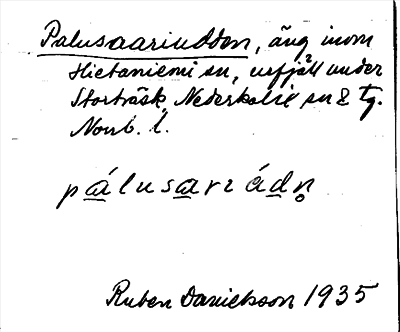 Palusaariudden, äng inom
Hietaniemi sn, urfjäll under
Storträsk, Nederkalix sn & tg.
Norrb. l.
pálusariádn̥
Ruben Danielsson 1935